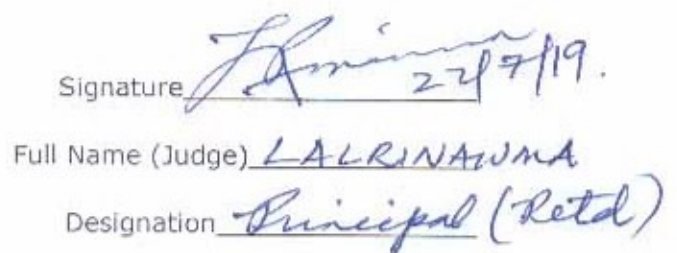 Signature 22/7/19.
Full Name (Judge) LALRINAWMA
Designation Principal (Retd)